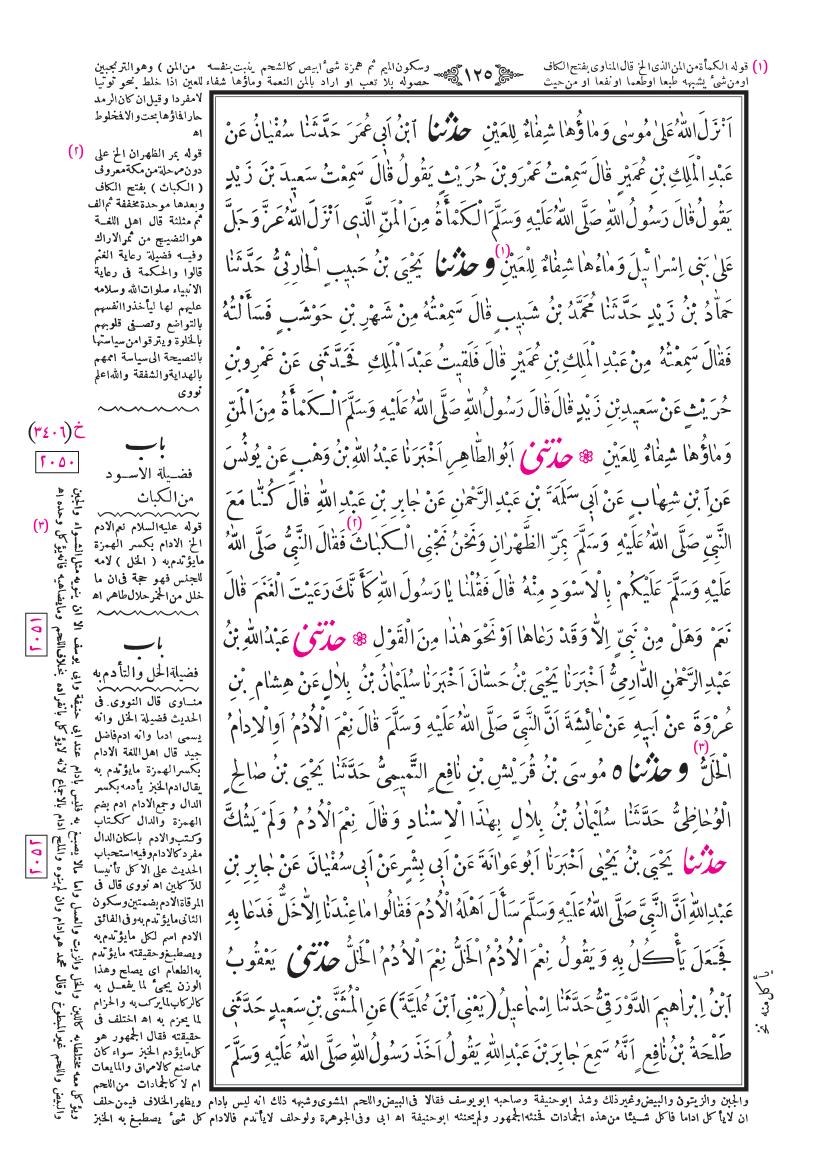 (١) قوله الكمأة من المن الذى الخ قال المناوى بفتح الكاف
وسكون الميم ثم همزة شئ ابيض كالشحم ينبت بنفسه
من المن ) وهو الترنجبين
اومن شئ يشبهه طبعا اوطعما اونفعا او من حيث
حصوله بلا تعب او اراد بالمن النعمة وماؤها شفاء
للعين اذا خلط بنحو توتيا
١٢٥
اَنْزَلَ اللّٰهُ عَلىٰ مُوسٰى وَمَاؤُهَا شِفَاءٌ لِلْعَيْنِ حدثنا ابْنُ اَبِي عُمَرَ حَدَّثَنَا سُفْيَانُ عَنْ
عَبْدِ الْمَلِكِ بْنِ عُمَيْرٍ قَالَ سَمِعْتُ عَمْرَو بْنَ حُرَيْثٍ يَقُولُ قَالَ سَمِعْتُ سَعِيدَ بْنَ زَيْدٍ
يَقُولُ قَالَ رَسُولُ اللّٰهِ صَلَّى اللّٰهُ عَلَيْهِ وَسَلَّمَ الْكَمْأَةُ مِنَ الْمَنِّ الَّذِى اَنْزَلَ اللّٰهُ عَزَّ وَجَلَّ
عَلىٰ بَنِى اِسْرَائِيلَ وَمَاءُهَا شِفَاءٌ لِلْعَيْنِ (١) وحدثنا يَحْيَى بْنُ حَبِيبٍ الْحَارِثِىُّ حَدَّثَنَا
حَمَّادُ بْنُ زَيْدٍ حَدَّثَنَا مُحَمَّدُ بْنُ شَبِيبٍ قَالَ سَمِعْتُهُ مِنْ شَهْرِ بْنِ حَوْشَبٍ فَسَأَلْتُهُ
فَقَالَ سَمِعْتُهُ مِنْ عَبْدِ الْمَلِكِ بْنِ عُمَيْرٍ قَالَ فَلَقِيتُ عَبْدَ الْمَلِكِ فَحَدَّثَنِى عَنْ عَمْرِو بْنِ
حُرَيْثٍ عَنْ سَعِيدِ بْنِ زَيْدٍ قَالَ قَالَ رَسُولُ اللّٰهِ صَلَّى اللّٰهُ عَلَيْهِ وَسَلَّمَ الْكَمْأَةُ مِنَ الْمَنِّ
وَمَاؤُهَا شِفَاءٌ لِلْعَيْنِ ❁ حدثنى اَبُو الطَّاهِرِ اَخْبَرَنَا عَبْدُ اللّٰهِ بْنُ وَهْبٍ عَنْ يُونُسَ
عَنِ ابْنِ شِهَابٍ عَنْ اَبِى سَلَمَةَ بْنِ عَبْدِ الرَّحْمٰنِ عَنْ جَابِرِ بْنِ عَبْدِ اللّٰهِ قَالَ كُنَّا مَعَ
النَّبِىِّ صَلَّى اللّٰهُ عَلَيْهِ وَسَلَّمَ بِمَرِّ الظَّهْرَانِ وَنَحْنُ نَجْنِى الْكَبَاثَ (٢) فَقَالَ النَّبِىُّ صَلَّى اللّٰهُ
عَلَيْهِ وَسَلَّمَ عَلَيْكُمْ بِالْاَسْوَدِ مِنْهُ قَالَ فَقُلْنَا يَا رَسُولَ اللّٰهِ كَأَنَّكَ رَعَيْتَ الْغَنَمَ قَالَ
نَعَمْ وَهَلْ مِنْ نَبِىٍّ اِلَّا وَقَدْ رَعَاهَا اَوْ نَحْوَ هٰذَا مِنَ الْقَوْلِ ❁ حدثنى عَبْدُ اللّٰهِ بْنُ
عَبْدِ الرَّحْمٰنِ الدَّارِمِىُّ اَخْبَرَنَا يَحْيَى بْنُ حَسَّانَ اَخْبَرَنَا سُلَيْمَانُ بْنُ بِلَالٍ عَنْ هِشَامِ بْنِ
عُرْوَةَ عَنْ اَبِيهِ عَنْ عَائِشَةَ اَنَّ النَّبِىَّ صَلَّى اللّٰهُ عَلَيْهِ وَسَلَّمَ قَالَ نِعْمَ الْاُدُمُ اَوِ الْاِدَامُ
الْخَلُّ (٣) وحدثناه مُوسَى بْنُ قُرَيْشِ بْنِ نَافِعٍ التَّمِيمِىُّ حَدَّثَنَا يَحْيَى بْنُ صَالِحٍ
الْوُحَاظِىُّ حَدَّثَنَا سُلَيْمَانُ بْنُ بِلَالٍ بِهٰذَا الْاِسْنَادِ وَقَالَ نِعْمَ الْاُدُمُ وَلَمْ يَشُكَّ
حدثنا يَحْيَى بْنُ يَحْيَى اَخْبَرَنَا اَبُو عَوَانَةَ عَنْ اَبِى بِشْرٍ عَنْ اَبِى سُفْيَانَ عَنْ جَابِرِ بْنِ
عَبْدِ اللّٰهِ اَنَّ النَّبِىَّ صَلَّى اللّٰهُ عَلَيْهِ وَسَلَّمَ سَأَلَ اَهْلَهُ الْاُدُمَ فَقَالُوا مَا عِنْدَنَا اِلَّا خَلٌّ فَدَعَا بِهِ
فَجَعَلَ يَأْكُلُ بِهِ وَيَقُولُ نِعْمَ الْاُدُمُ الْخَلُّ نِعْمَ الْاُدُمُ الْخَلُّ حدثنى يَعْقُوبُ
ابْنُ اِبْرَاهِيمَ الدَّوْرَقِىُّ حَدَّثَنَا اِسْمَاعِيلُ (يَعْنِى ابْنَ عُلَيَّةَ) عَنِ الْمُثَنَّى بْنِ سَعِيدٍ حَدَّثَنِى
طَلْحَةُ بْنُ نَافِعٍ اَنَّهُ سَمِعَ جَابِرَ بْنَ عَبْدِ اللّٰهِ يَقُولُ اَخَذَ رَسُولُ اللّٰهِ صَلَّى اللّٰهُ عَلَيْهِ وَسَلَّمَ
لا مفردا وقيل ان كان الرمد
حارا فماؤها بحت والا فمخلوط
اه
(٢) قوله بمر الظهران الخ على
دون مرحلة من مكة معروف
( الكباث ) بفتح الكاف
وبعدها موحدة مخففة ثم الف
ثم مثلثة قال اهل اللغة
هو النضيج من ثمر الاراك
وفيه فضيلة رعاية الغنم
قالوا والحكمة فى رعاية
الانبياء صلوات الله وسلامه
عليهم لها ليأخذوا انفسهم
بالتواضع وتصفى قلوبهم
بالخلوة ويترقوا من سياستها
بالنصيحة الى سياسة اممهم
بالهداية والشفقة والله اعلم
نووى
باب
خ(٣٤٠٦)
٢٠٥٠
فضيلة الاسود
من الكباث
(٣) قوله عليه السلام نعم الادم
الخ الادام بكسر الهمزة
مايؤتدم به ( الخل ) لامه
للجنس فهو حجة فى ان ما
خلل من الخمر حلال طاهر اه
٢٠٥١
باب
فضيلة الخل والتأدم به
مناوى قال النووى فى
الحديث فضيلة الخل وانه
يسمى ادما وانه ادم فاضل
جيد قال اهل اللغة الادام
بكسر الهمزة مايؤتدم به
يقال ادم الخبز يأدمه بكسر
الدال وجمع الادام ادم بضم
الهمزة والدال ككتاب
وكتب والادم باسكان الدال
مفرد كالادام وفيه استحباب
الحديث على الاكل تأنيسا
للآكلين اه نووى قال فى
المرقاة الادم بضمتين وسكون
الثانى مايؤتدم به وفى الفائق
الادم اسم لكل مايؤتدم به
ويصطبغ وحقيقته مايؤدم
به الطعام اى يصلح وهذا
الوزن يجئ لما يفعل به
كالركاب لما يركب به والحزام
لما يحزم به اه اختلف فى
حقيقته فقال الجمهور هو
كل مايؤدم الخبز سواء كان
مما صنع كالامراق والمايعات
ام لا كالجمادات من اللحم
٢٠٥٢
والجبن والزيتون والبيض وغير ذلك وشذ ابوحنيفة وصاحبه ابو يوسف فقالا فى البيض واللحم المشوى وشبهه ذلك انه ليس بادام ويظهر الخلاف فيمن حلف
ان لا يأكل اداما فاكل شيئا من هذه الجمادات فحنثه الجمهور ولم يحنثه ابوحنيفة اه ابى وفى الجوهرة ولو حلف لا يأتدم فالادام كل شئ يصطبغ به الخبز
ويؤكل معه مختلطا به كاللبن والخل والزيت والعسل واما مالا يصبغ به فليس بادام عند ابى حنيفة وابى يوسف الا ان ينويه مثل الشواء والجبن
والبيض واللحم غير المطبوخ وقال محمد هو ادام وان لم ينوه والملح ادام بالاجماع لانه لا يؤكل بانفراده بخلاف اللحم وما يضاهيه فانه يؤكل وحده اه